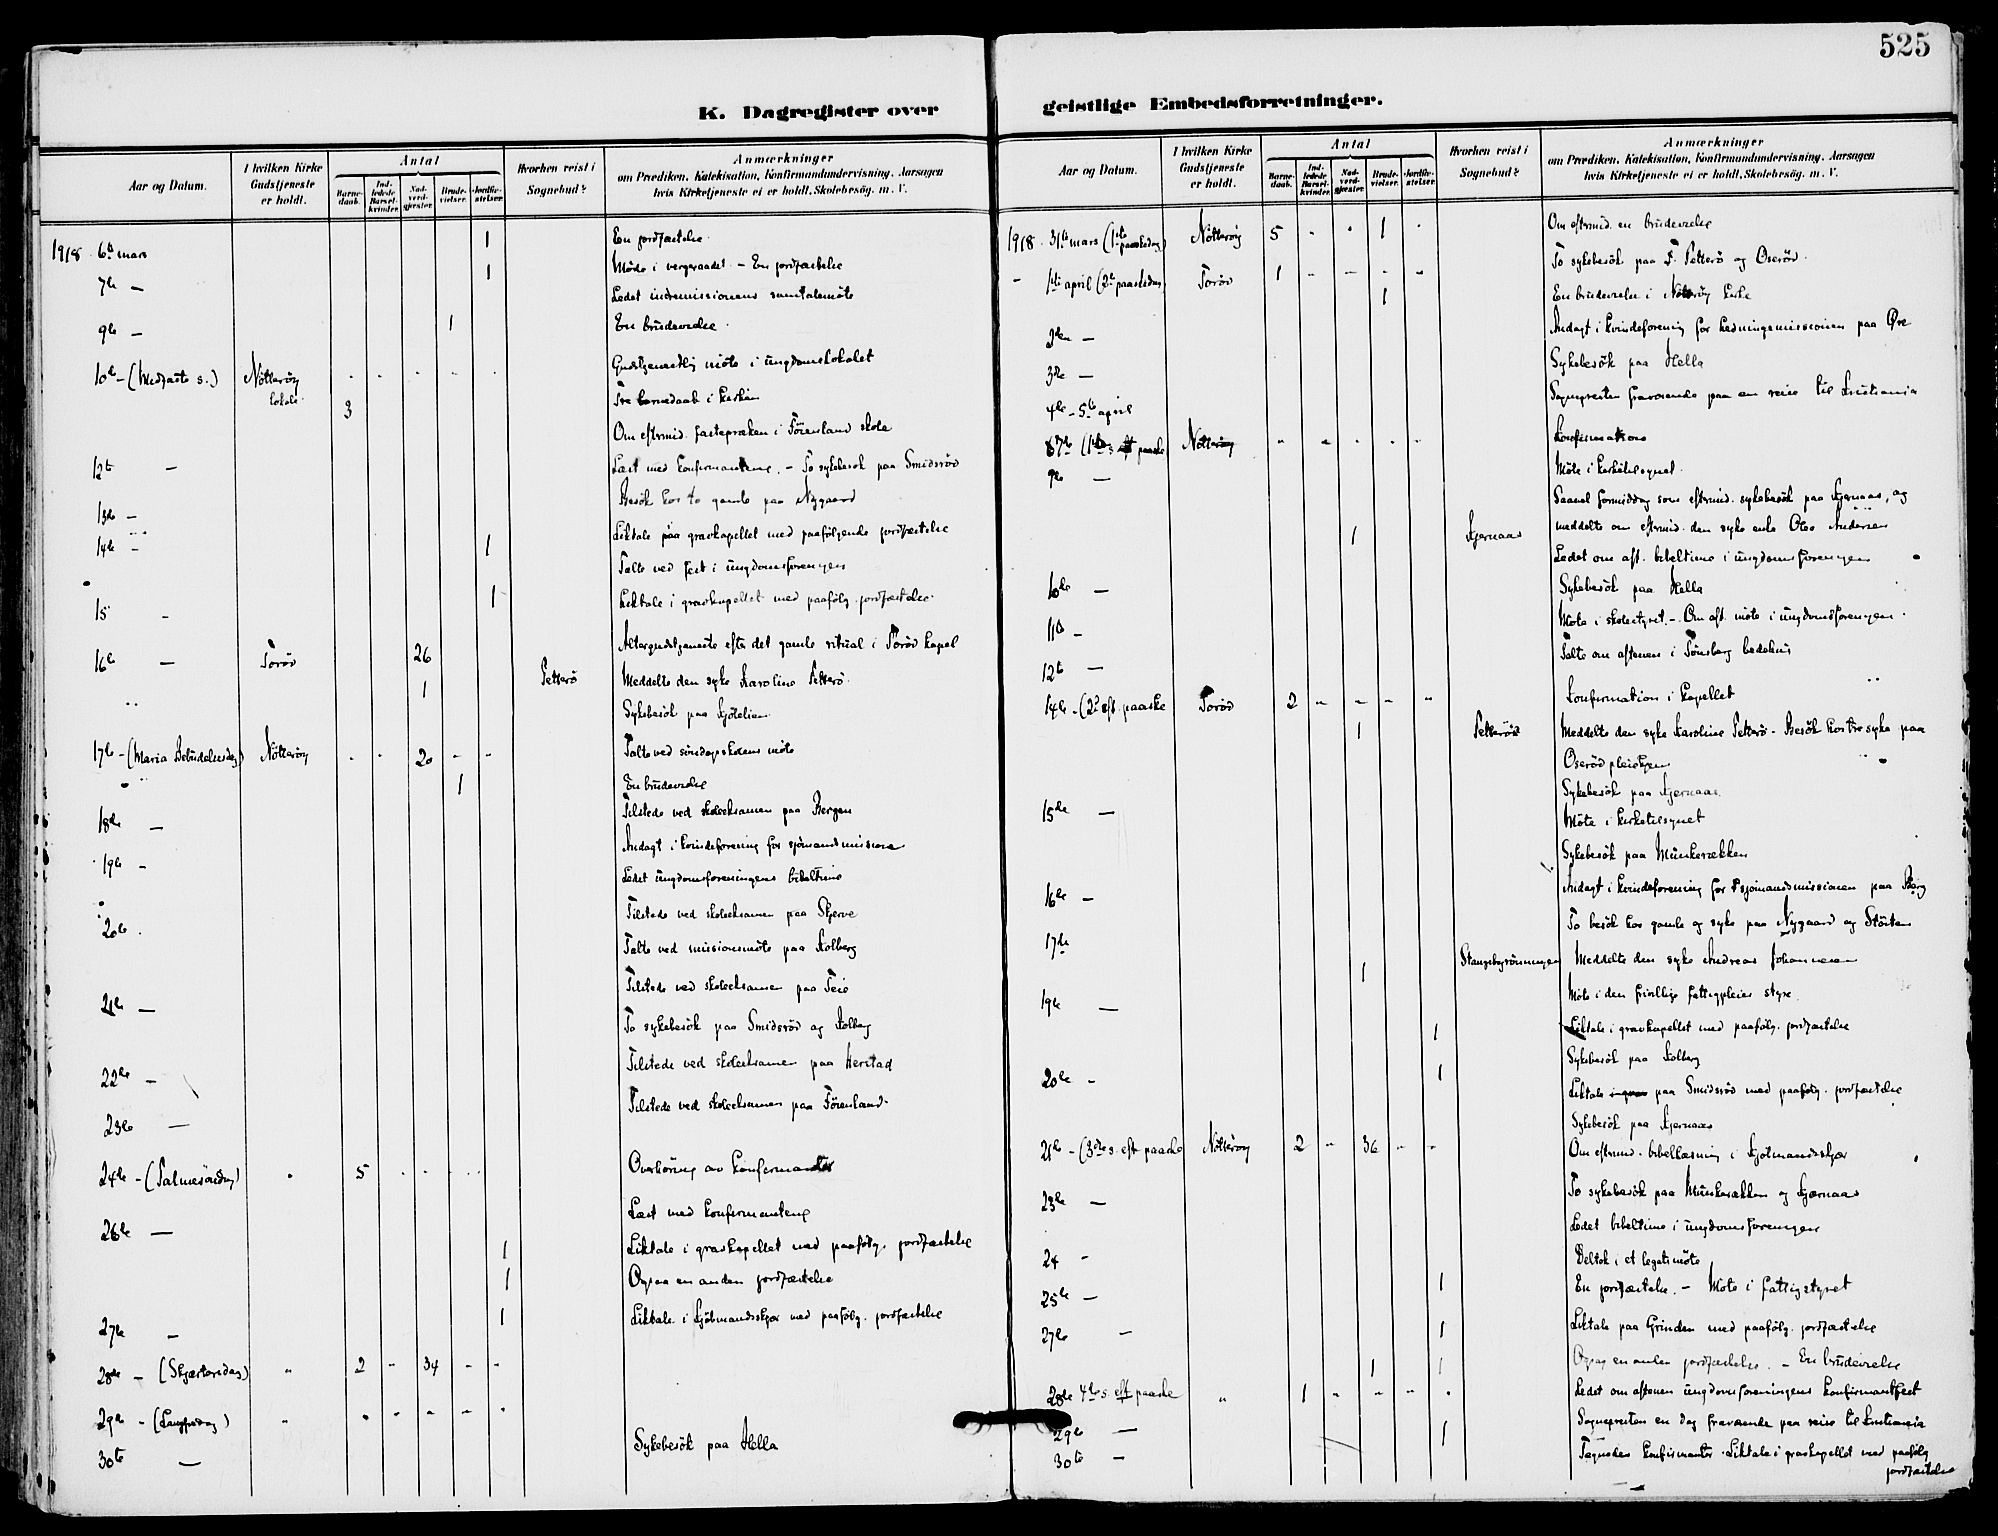 525
K. Dagregister over geistlige Embedsforretninger.
Aar og Datum. I hvilken Kirke Gudstjeneste er holdt. Antal Barnedaab. Indledede Barselkvinder. Nadverdgjester. Brudevielser. Jordfæstelser. Hvorhen reist i Sognebud? Anmærkninger
om Prædiken, Katekisation, Konfirmandundervisning, Aarsagen
hvis Kirketjeneste ei er holdt, Skolebesög. m. V.
1918. 6te mars 1 En jordfæstelse.
7de — 1 Möde i vergeraadet. – En jordfæstelse
Ledet indremissionens samtalemöte
9de — 1 En brudevielse.
10de – (Midfaste s.) Nötteröy lokale Gudstjenestlig möte i ungdomslokalet
3 Tre barnedaab i kirken
Om eftrmid. fasteprœken i Föienland skole
12te — Læst med konfirmantene. – To sykebesök paa Smidsröd
13de — Besök hos to gamle paa Nygaard
14de — 1 Liktale paa gravkapellet med paafölgende jordfæstelse
Talte ved fest i ungdomsforengen
15 – 1 Liktale i gravkapellet med paafölg. jordfæstelse.
16de — Toröd 26 Altergudstjeneste efter det gamle ritual i Toröd kapel
1 Petterö Meddelte den syke Karoline Petterö.
Sykebesök paa
17de – (Maria Bebudelsesdag) Nötteröy - - 20 - - Talte ved söndagsskolens möte
1 En brudevielse
18de — Tilstede ved skoleeksamen paa Bergan
19de – Andagt i kvindeforening for sjömandsmissionen
Ledet ungdomsforeningens bibeltime
20de Tilstede ved skoleeksamen paa Skjerve
Talte ved missionsmöte paa Kolberg
21de — Tilstede ved skoleeksamen paa Teie
To sykebesök paa Smidsröd og Kolberg
22de – Tilstede ved skoleeksamen paa Herstad
23de — Tilstede ved skoleeksamen paa Föienland.
24de – (Palmesöndag) " 5 - - - - Overhöring av konfirmanter
26de — Læst med konfirmantene
1 Liktale i gravkapellet med paafölg. jordfæstelse
1 Ogsaa en anden jordfæstelse
27de – 1 Liktale i Kjöbmandsskjær med paafölg. jordfæstelse
28de – (Skjærtorsdag) " 2 - 34 - -
29de – (Langfredag) " - - - - -
30te — Sykebesök paa Hella
Aar og Datum. I hvilken Kirke Gudstjeneste er holdt. Antal Barnedaab. Indledede Barselkvinder. Nadverdgjester. Brudevielser. Jordfæstelser. Hvorhen reist i Sognebud? Anmærkninger
om Prædiken, Katekisation, Konfirmandundervisning, Aarsagen
hvis Kirketjeneste ei er holdt, Skolebesög. m. V.
1918. 31te mars (1ste paaskedag) Nötteröy 5 - - 1 - Om eftrmid. en brudevielse
To sykebesök paa F. Petterö og Oseröd.
– 1ste april (2de paaskedag) Toröd 1 - - - -
1 En brudevielse i Nötteröy kirke
2den — Andagt i kvindeforening for hedningemissionen paa Öre
3die — Sykebesök paa Hella
4de – 5te april Sognepresten fraværende paa en reise til Kristiania
7de (1ste s. eft paaske Nötteröy - - - - - Konfirmation
9de — Möte i kirketilsynet.
Saavel formiddag som eftrmid. sykebesök paa Kjernaas, og
1 Kjernaas meddelte om eftrmid. den syke enke Andersen
Ledet om aft. bibeltime i ungdomsforengen
10de — Sykebesök paa Hella
11te – Möte i skolestyret. – Om aft. möte i ungdomsforengen.
12te — Talte om aftenen i Tönsberg bedehus
14de – (2d s. eft. paaske Toröd 2 - - - - Konfirmation i kapellet
1 Petterö Meddelte den syke Karoline Petterö. Besök hos tre syke paa
Oseröd pleiehjem
15de — Sykebesök paa Kjernaas.
Möte i kirketilsynet
Sykebesök paa Munkerækken
16de – Andagt i kvindeforening for sjömandsmissionen paa Berg
17de To besök hos gamle og syke paa Nygaard og Störten
1 Meddelte den syke Andreas Johannesen
19de — Möte i den frivillige fattigpleies styre.
1 Liktale i gravkapellet med paafölg. jordfæstelse
Sykebesök paa Kolberg
20de – 1 Liktale paa Smidsröd med paafölg. jordfæstelse
Sykebesök paa Kjernaas
21de – (3die s. eft paaske Nötteröy 2 - 36 - - Om eftrmid. bibellæsning i Kjöbmandsskjær
23de — To sykebesök paa Munkerækken og Kjærnaas
Ledet bibeltime i ungdomsforengen
24 – Deltok i et legatmöte
25de — 1 En jordfæstelse. – Möte i fattigstyret
27de — 1 Liktale paa Grinden med paafölg. jordfæstelse
1 1 Ogsaa en anden jordfæstelse. – En brudevielse
28de 4de s. eft paaske " 1 - - - - Ledet om aftenen ungdomsforeningens konfirmantfest
29de — Sognepresten en dag fraværende paa reise til Kristiania
30te – 1 konfirmanter. Liktale i gravkapellet med paafölg
jordfæstelse